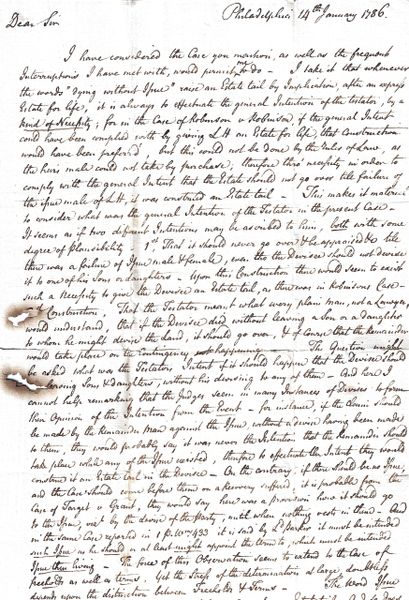 Philadelphia 14th January 1786.
Dear Sir
I have considered the Case you mention, as well as the frequent
Interruptions I have met with, would permit to do — I take it that whenever
the words "dying without Issue" raise an Estate tail by Implication, after an express
Estate for life, it is always to effectuate the general Intention of the testator, by a
kind of Necessity; for in the Case of Robinson v Robinson, if the general Intent
could have been complied with by giving L H an Estate for life, that Construction
would have been preferd but this could not be done by the Rules of Law, as
the heirs male could not take by purchase, therefore there's necessity in order to
comply with the general Intent that the Estate should not go over till failure of
the issue male of L H, it was construed an Estate tail — This makes it material
to consider what was the general Intention of the Testator in the present Case —
It seems as if two different Intentions may be ascribed to him, both with some
degree of Plausibility 1st That it should never go over till
there was a failure of Issue male & female, even tho the Devisee should not devise
it to one of his Sons or daughters — Upon this Construction there would seem to exist
such a Necessity to give the Devisee an Estate tail, as there was in Robinsons Case —
Construction, That the Testator meant what every plain man, not a Lawyer
would understand, that if the Devisee died without leaving a Son or a Daughter
to whom he might devise the Land, it should go over, & of course that the remainder
would take place on the Contingency not happening The Question might
be asked what was the Testators Intent if it should happen that the Devisee should
leaving Sons & daughters, without his devising to any of them — And here I
cannot help remarking that the Judges seem in many Instances of Devises to form
their Opinion of the Intention from the Event — for instance, if the Claim should
be made by the Remainder Man against the Issue, without a devise having been made
to them, they would probably say it was never the Intention that the Remainder should
take place while any of the Issue existed, therefore to effectuate the Intent they would
construe it an Estate tail in the Devisee — On the contrary, if there should be no Issue,
and the Case should come before them on a recovery suffered, it is probable from the
Case of Target v Grant, they would say here was a provision how it should go
to the Issue, by the devise of the party, until when nothing exists in them — And
in the same Case reported in 1 P. Wms 433 it is said by Ld Parker it must be intended
such Issue as he should or at least might appoint the term to, which must be intended
Issue then living — The force of this Observation seems to extend to the Case of
freeholds as well as terms, Yet the Stress of the determination at large, doubtless
depends upon the distinction between Freeholds & Terms — The Word Issue